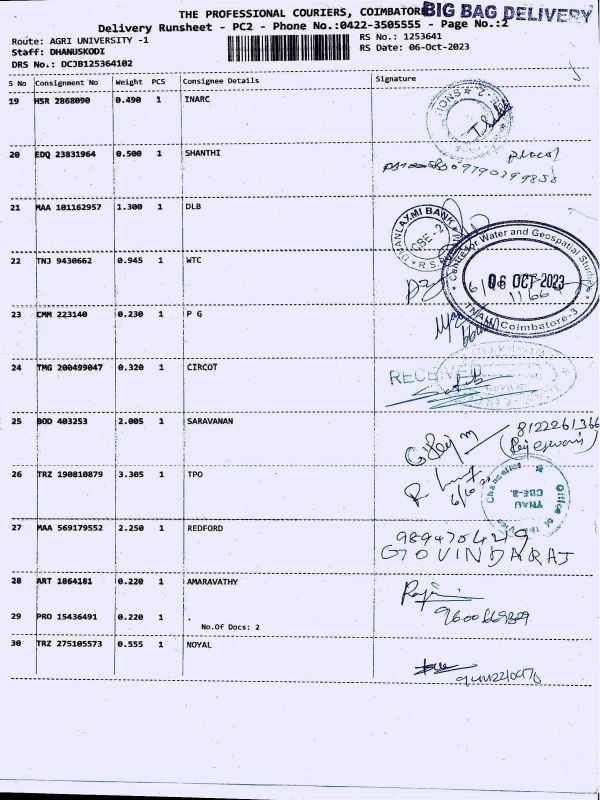 THE PROFESSIONAL COURIERS, COIMBATORE
BIG BAG DELIVERY
Delivery Runsheet - PC2 - Phone No.:0422-3505555 - Page No.:2
Route: AGRI UNIVERSITY -1
RS No.: 1253641
Staff: DHANUSKODI
RS Date: 06-Oct-2023
DRS No.: DCJB125364102
S No Consignment No Weight PCS Consignee Details Signature
19 HSR 2868090 0.490 1 INARC
20 EDQ 23831964 0.500 1 SHANTHI
9790399838
21 MAA 101162957 1.300 1 DLB
DHANLAXMI BANK
CBE-2
22 TNJ 9430662 0.945 1 WTC
Centre for Water and Geospatial Studies
06 OCT 2023
TNAU, Coimbatore-3
23 CMM 223140 0.230 1 P G
24 TMG 200499047 0.320 1 CIRCOT
RECEIVED
25 BOD 403253 2.005 1 SARAVANAN
8122261366
26 TRZ 190810879 3.305 1 TPO
Office of the Vice Chancellor
TNAU
CBE-3.
27 MAA 569179552 2.250 1 REDFORD
9894704219
GOVINDARAJ
28 ART 1864181 0.220 1 AMARAVATHY
29 PRO 15436491 0.220 1 .
No.Of Docs: 2
30 TRZ 275105573 0.555 1 NOYAL